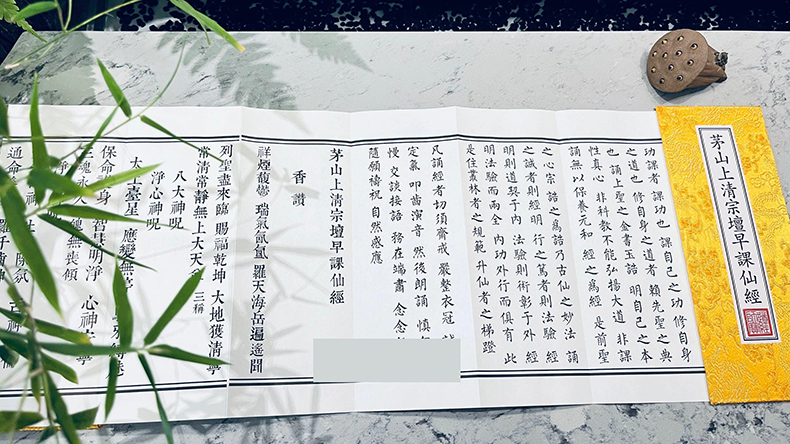 茅山上清宗壇早課仙經
功課者 課功也 課自己之功 修自身
之道也 修自身之道者 賴先聖之典
也 誦上聖之金書玉誥 明自己之本
性真心 非科教不能弘揚大道 非課
誦無以保養元和 經之爲經 是前聖
之心宗 誥之爲誥 乃古仙之妙法 誦
之誠者則經明 行之篤者則法驗 經
明則道契于內 法驗則術彰于外 經
明法驗而兩全 內功外行而俱有 此
是住叢林者之規範 升仙者之梯蹬
凡誦經者切須齋戒 嚴整衣冠
定氣 叩齒演音 然後朗誦 慎
慢 交談接語 務在端肅 念念
隨願禱祝 自然感應
茅山上清宗壇早課仙經
香讚
祥煙馥鬱 瑞氣氤氳 羅天海岳遍遙聞
列聖盡來臨 賜福乾坤 大地獲清寧
常清常靜無上大天尊 三稱
八大神咒
淨心神咒
太上臺星 應變無停
保命 身 智慧明淨 心神安寧
三魂 無喪傾
淨
通命